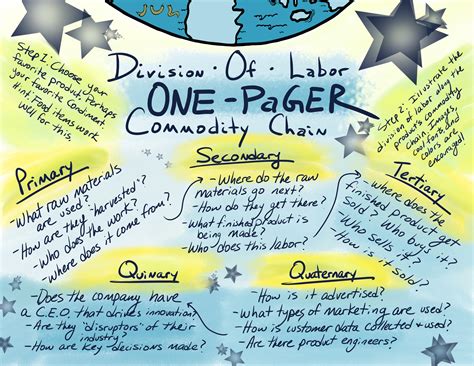 Division • Of • Labor
ONE-PaGER
Commodity Chain
Step 1: Choose your
favorite product. Perhaps
your favorite Condiment.
Hint: Food items work
well for this.
Step 2: Illustrate the
division of labor along
the commodity
chain. Images,
cool fonts, and
colors are
encouraged.
Primary
-What raw materials
are used?
-How are they "harvested"?
-Who does the work?
-Where does it come from?
Secondary
-Where do the raw
materials go next?
-How do they get there?
-What finished product is
being made?
-Who does this labor?
Tertiary
-Where does the
finished product get
sold? Who buys it?
-Who sells it?
-How is it sold?
Quinary
-Does the company have
a C.E.O. that drives innovation?
-Are they 'disruptors' of their
industry?
-How are key decisions made?
Quaternary
-How is it advertised?
-What types of marketing are used?
-How is customer data collected & used?
-Are there product engineers?